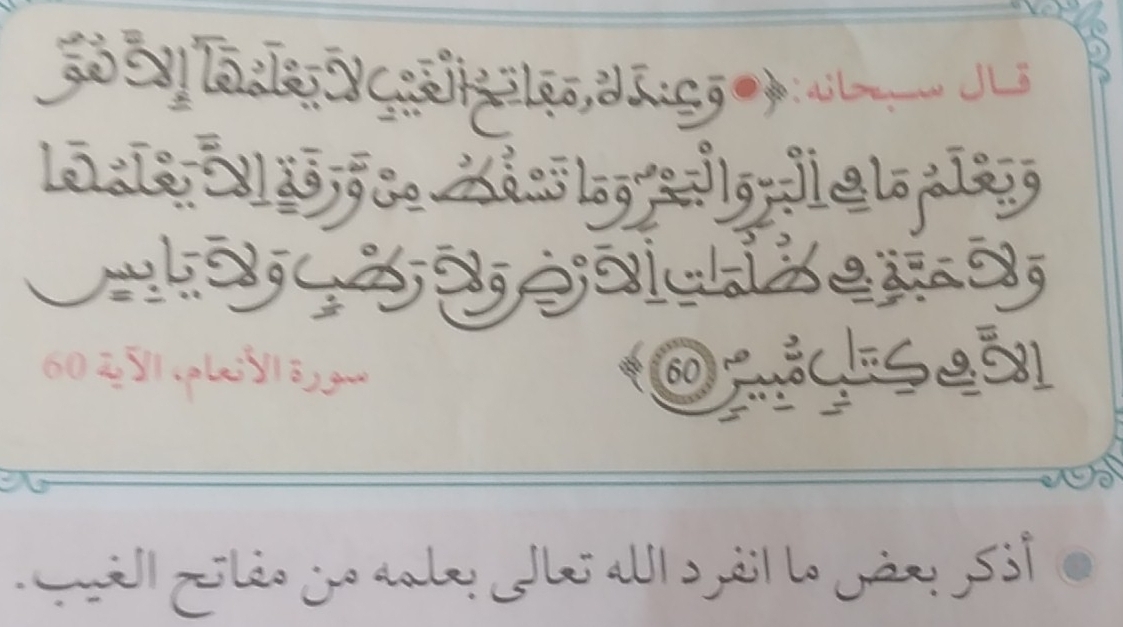 قال سبحانه: ﴿وَعِندَهُۥ مَفَاتِحُ اُ۬لْغَيْبِ لَا يَعْلَمُهَآ إِلَّا هُوَۖ
وَيَعْلَمُ مَا فِے اِ۬لْبَرِّ وَالْبَحْرِۖ وَمَا تَسْقُطُ مِنْ وَّرَقَةٍ اِلَّا يَعْلَمُهَا
وَلَا حَبَّةٍ فِے ظُلُمَٰتِ اِ۬لَارْضِ وَلَا رَطْبٍ وَلَا يَابِسٍ
اِلَّا فِے كِتَٰبٖ مُّبِينٖۖ 60﴾
سورة الأنعام، الآية 60
أذكر بعض ما انفرد الله تعالى بعلمه من مفاتح الغيب.